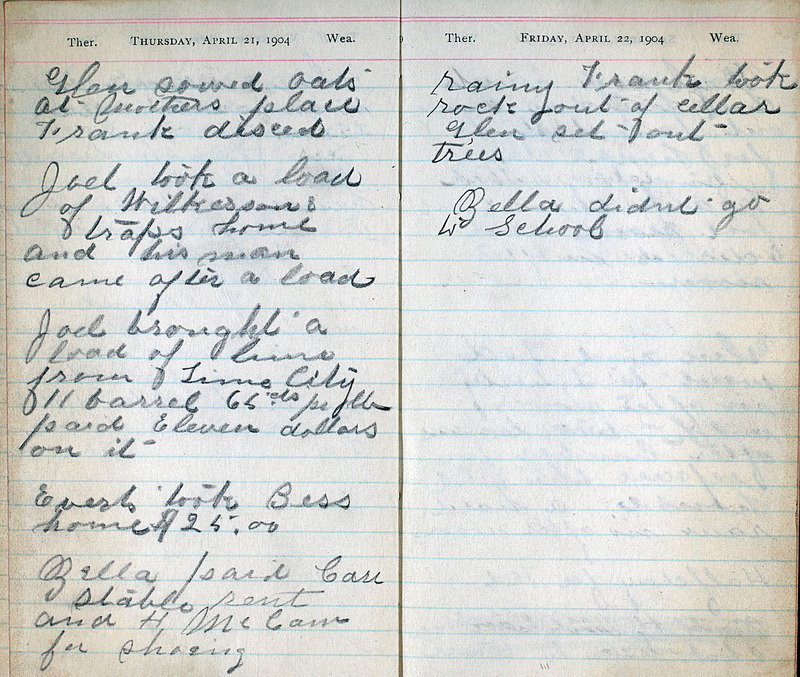 Ther. THURSDAY, APRIL 21, 1904 Wea.
Glen sowed oats
at Mothers place
Frank disced
Joel took a load
of Wilkersons
traps home
and his man
came after a load
Joel brought a
load of lime
from Lime City
11 barrel 65 cts per
paid Eleven dollars
on it
Everts took Bess
home $25.00
Bella paid Carl
stable rent
and H McCam
for shoeing
Ther. FRIDAY, APRIL 22, 1904 Wea.
rainy Frank took
rock out of cellar
Glen set out
trees
Bella didnt go
to School